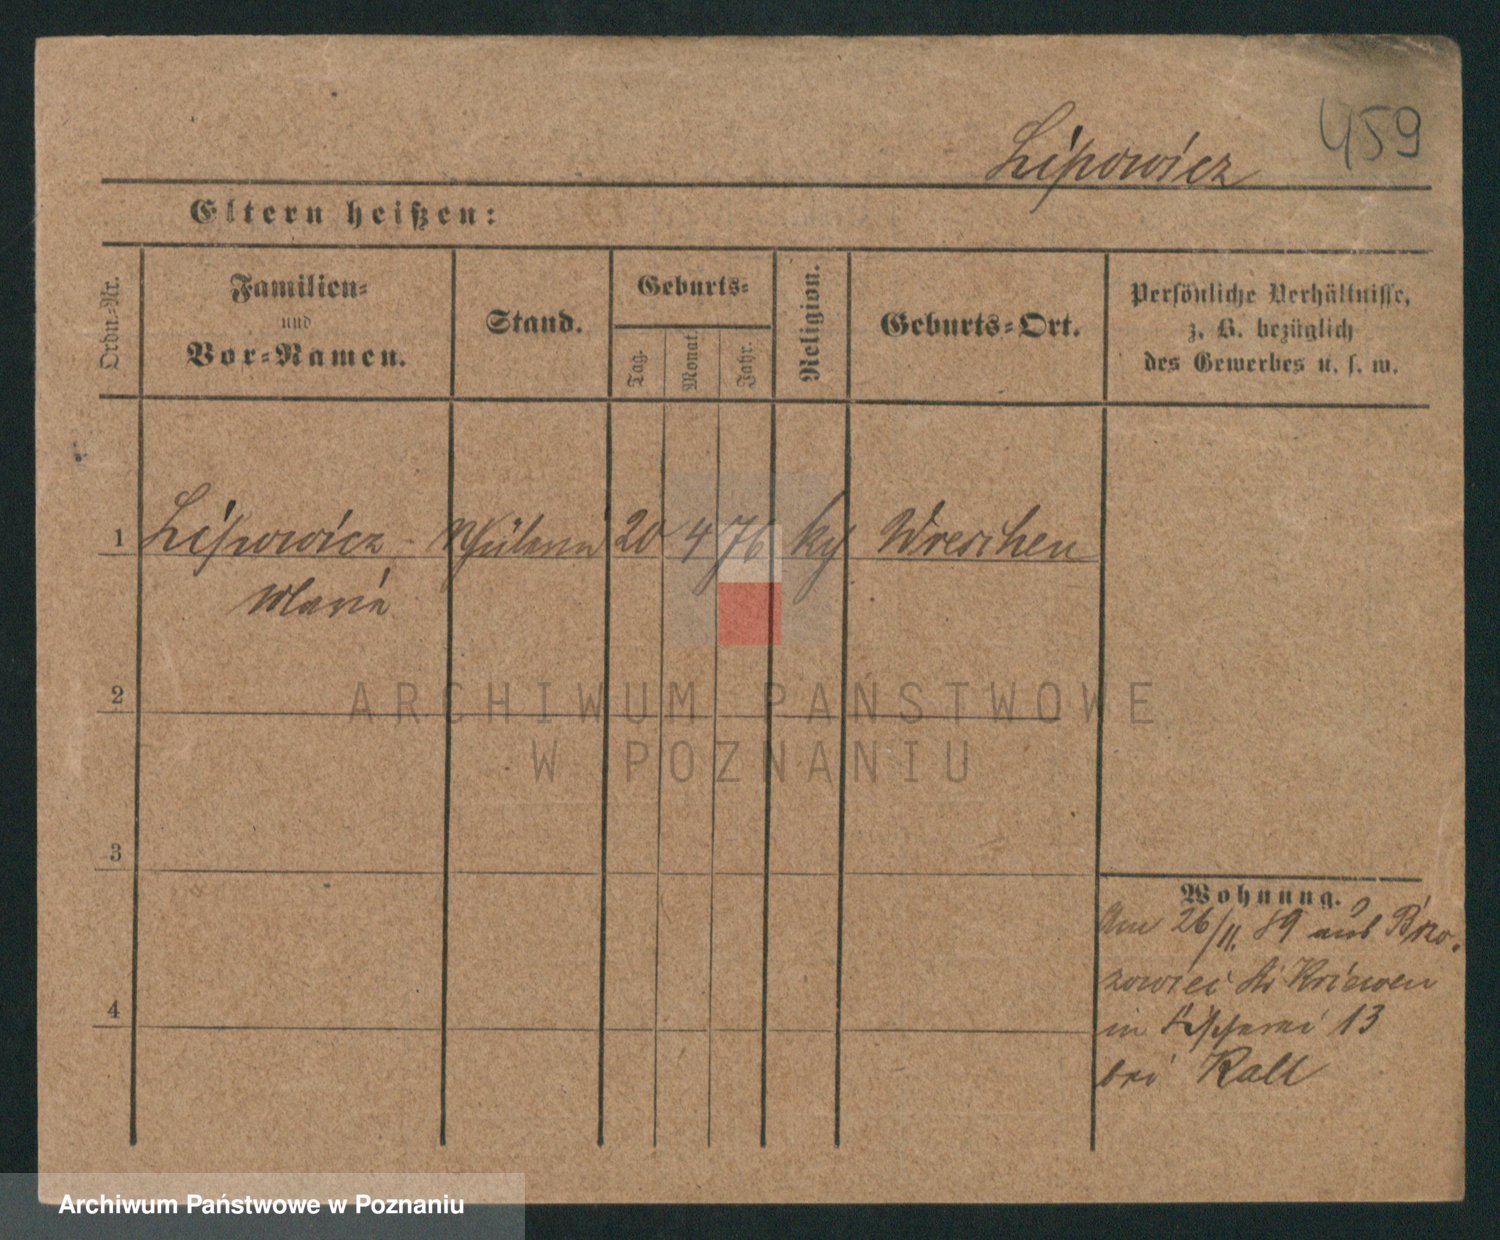 459
Lipowicz
Eltern heißen:
Ordn.-Nr.
Familien-
und
Vor-Namen.
Stand.
Geburts-
Tag.
Monat.
Jahr.
Religion.
Geburts-Ort.
Persönliche Verhältnisse,
z. B. bezüglich
des Gewerbes u. s. w.
1 Lipowicz Schülerin 20 4 76 Wreschen
Marie
2
3
4
Wohnung.
Am 26/11. 89 aus Brzo-
zowiec bei Kriewen
in 13
bei Rall
ARCHIWUM PAŃSTWOWE
W POZNANIU
Archiwum Państwowe w Poznaniu